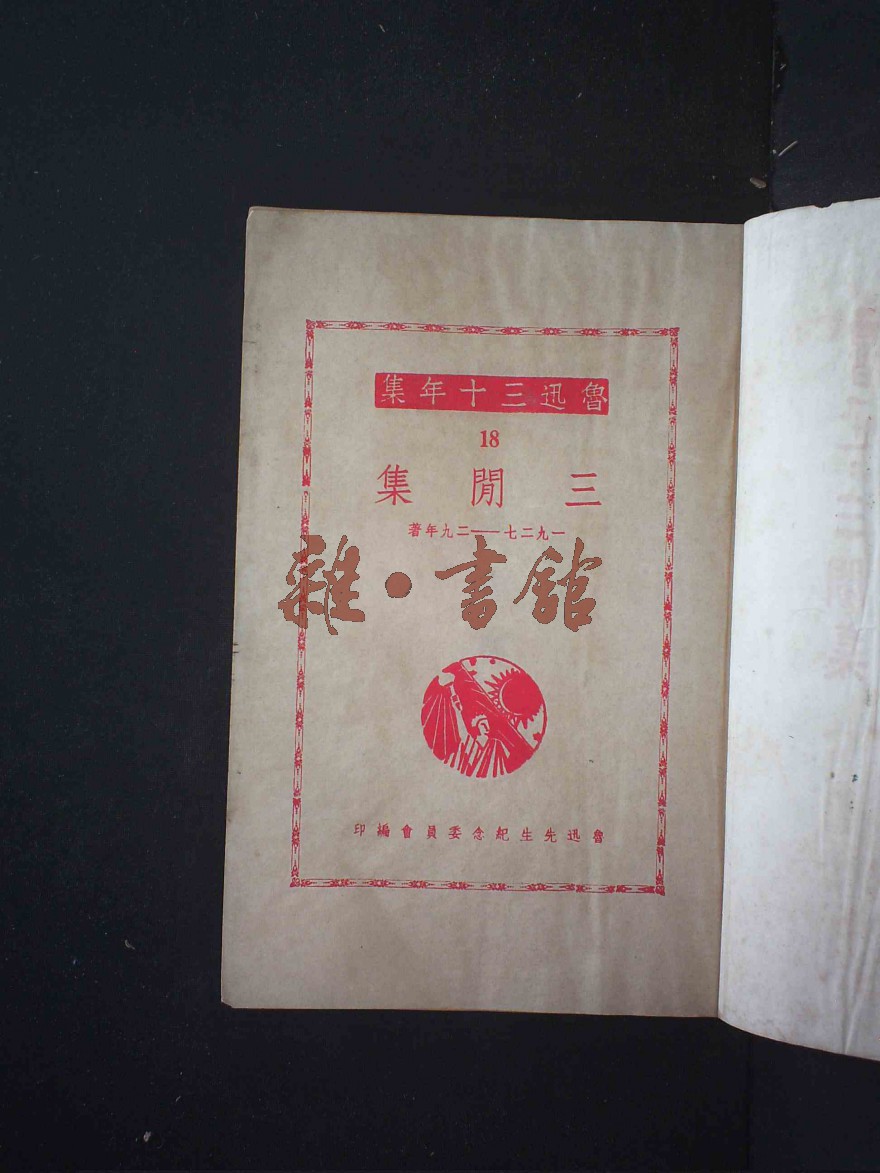 魯迅三十年集
18
三閒集
一九二七——二九年著
雜·書館
魯迅先生紀念委員會編印